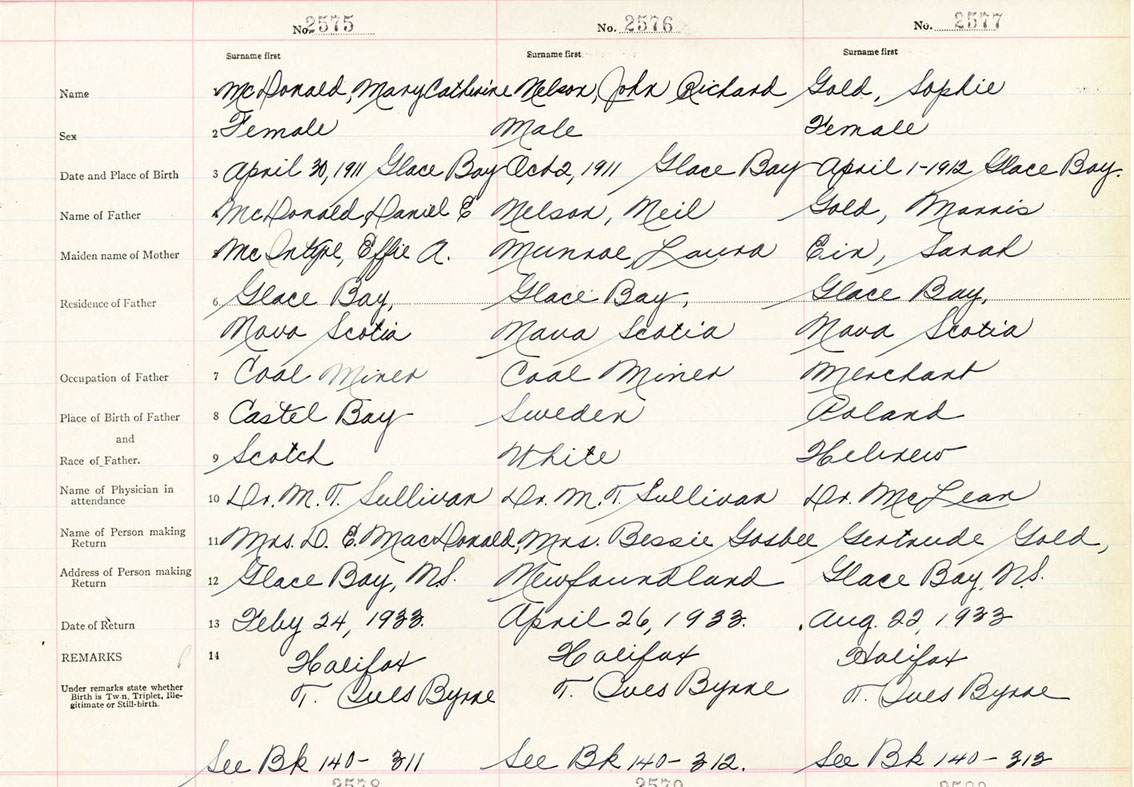 No. 2575 No. 2576 No. 2577
Surname first Surname first Surname first
Name McDonald, Mary Catherine Nelson, John Richard Gold, Sophie
Sex 2 Female Male Female
Date and Place of Birth 3 April 30, 1911 Glace Bay Oct 2, 1911 Glace Bay April 1-1912 Glace Bay.
Name of Father 4 McDonald, Daniel E Nelson, Neil Gold, Morris
Maiden name of Mother 5 McIntyre, Effie A. Munroe, Laura Ein, Sarah
Residence of Father 6 Glace Bay, Glace Bay, Glace Bay,
Nova Scotia Nova Scotia Nova Scotia
Occupation of Father 7 Coal Miner Coal Miner Merchant
Place of Birth of Father 8 Castel Bay Sweden Poland
and
Race of Father. 9 Scotch White Hebrew
Name of Physician in
attendance 10 Dr. M. T. Sullivan Dr. M. T. Sullivan Dr. McLean
Name of Person making
Return 11 Mrs. D. E. MacDonald, Mrs. Bessie Gosbee Gertrude Gold,
Address of Person making
Return 12 Glace Bay, N.S. Newfoundland Glace Bay, N.S.
Date of Return 13 Feby 24, 1933. April 26, 1933. Aug. 22, 1933
REMARKS 14 Halifax Halifax Halifax
Under remarks state whether
Birth is Twin, Triplet, Ille-
gitimate or Still-birth.
T. Ives Byrne T. Ives Byrne T. Ives Byrne
See Bk 140 - 311 See Bk 140 - 312. See Bk 140 - 313
2578 2579